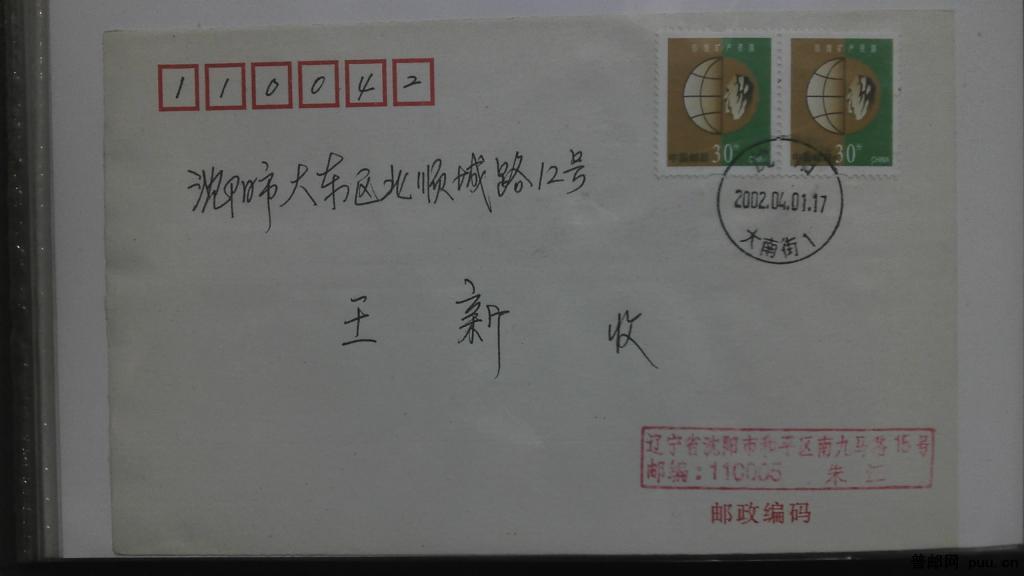 110042
保护矿产资源 保护矿产资源
中国邮政 30分 中国邮政 30分 CHINA
沈阳市大东区北顺城路12号
2002.04.01.17
大南街1
王新 收
辽宁省沈阳市和平区南九马路15号
邮编:110005 朱江
邮政编码
普邮网 puu.cn